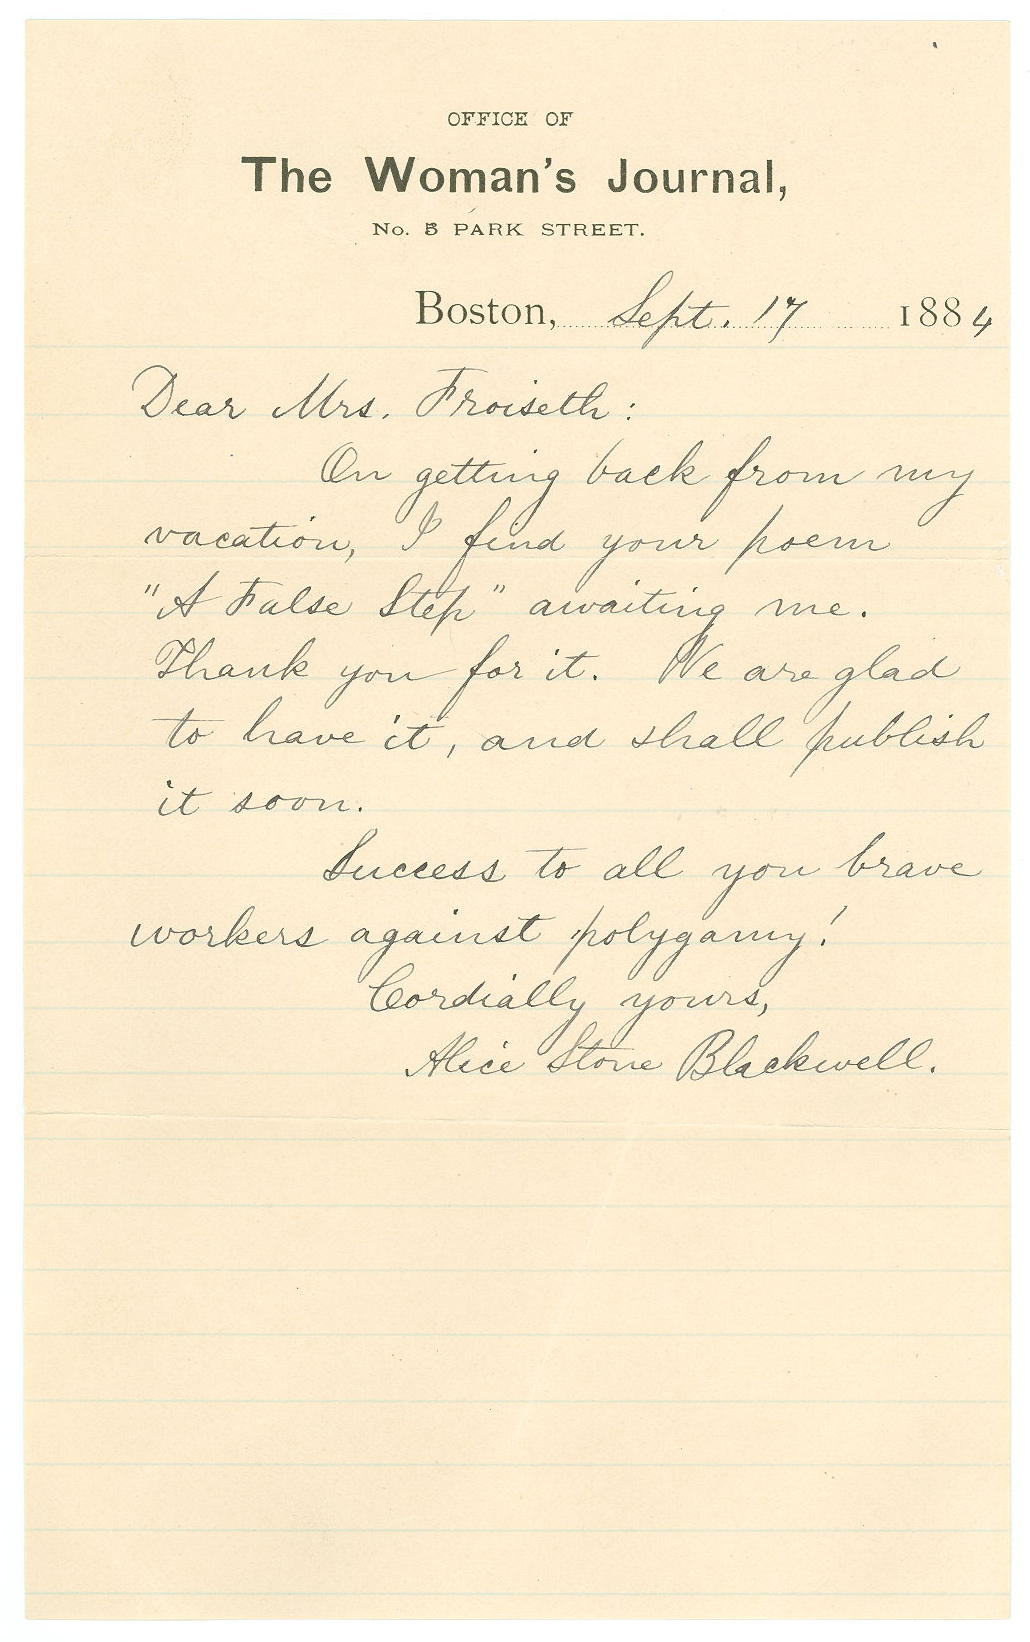 OFFICE OF
The Woman's Journal,
No. 5 PARK STREET.
Boston, Sept. 17 1884
Dear Mrs. Froiseth:
On getting back from my
vacation, I find your poem
"A False Step" awaiting me.
Thank you for it. We are glad
to have it, and shall publish
it soon.
Success to all you brave
workers against polygamy!
Cordially yours,
Alice Stone Blackwell.